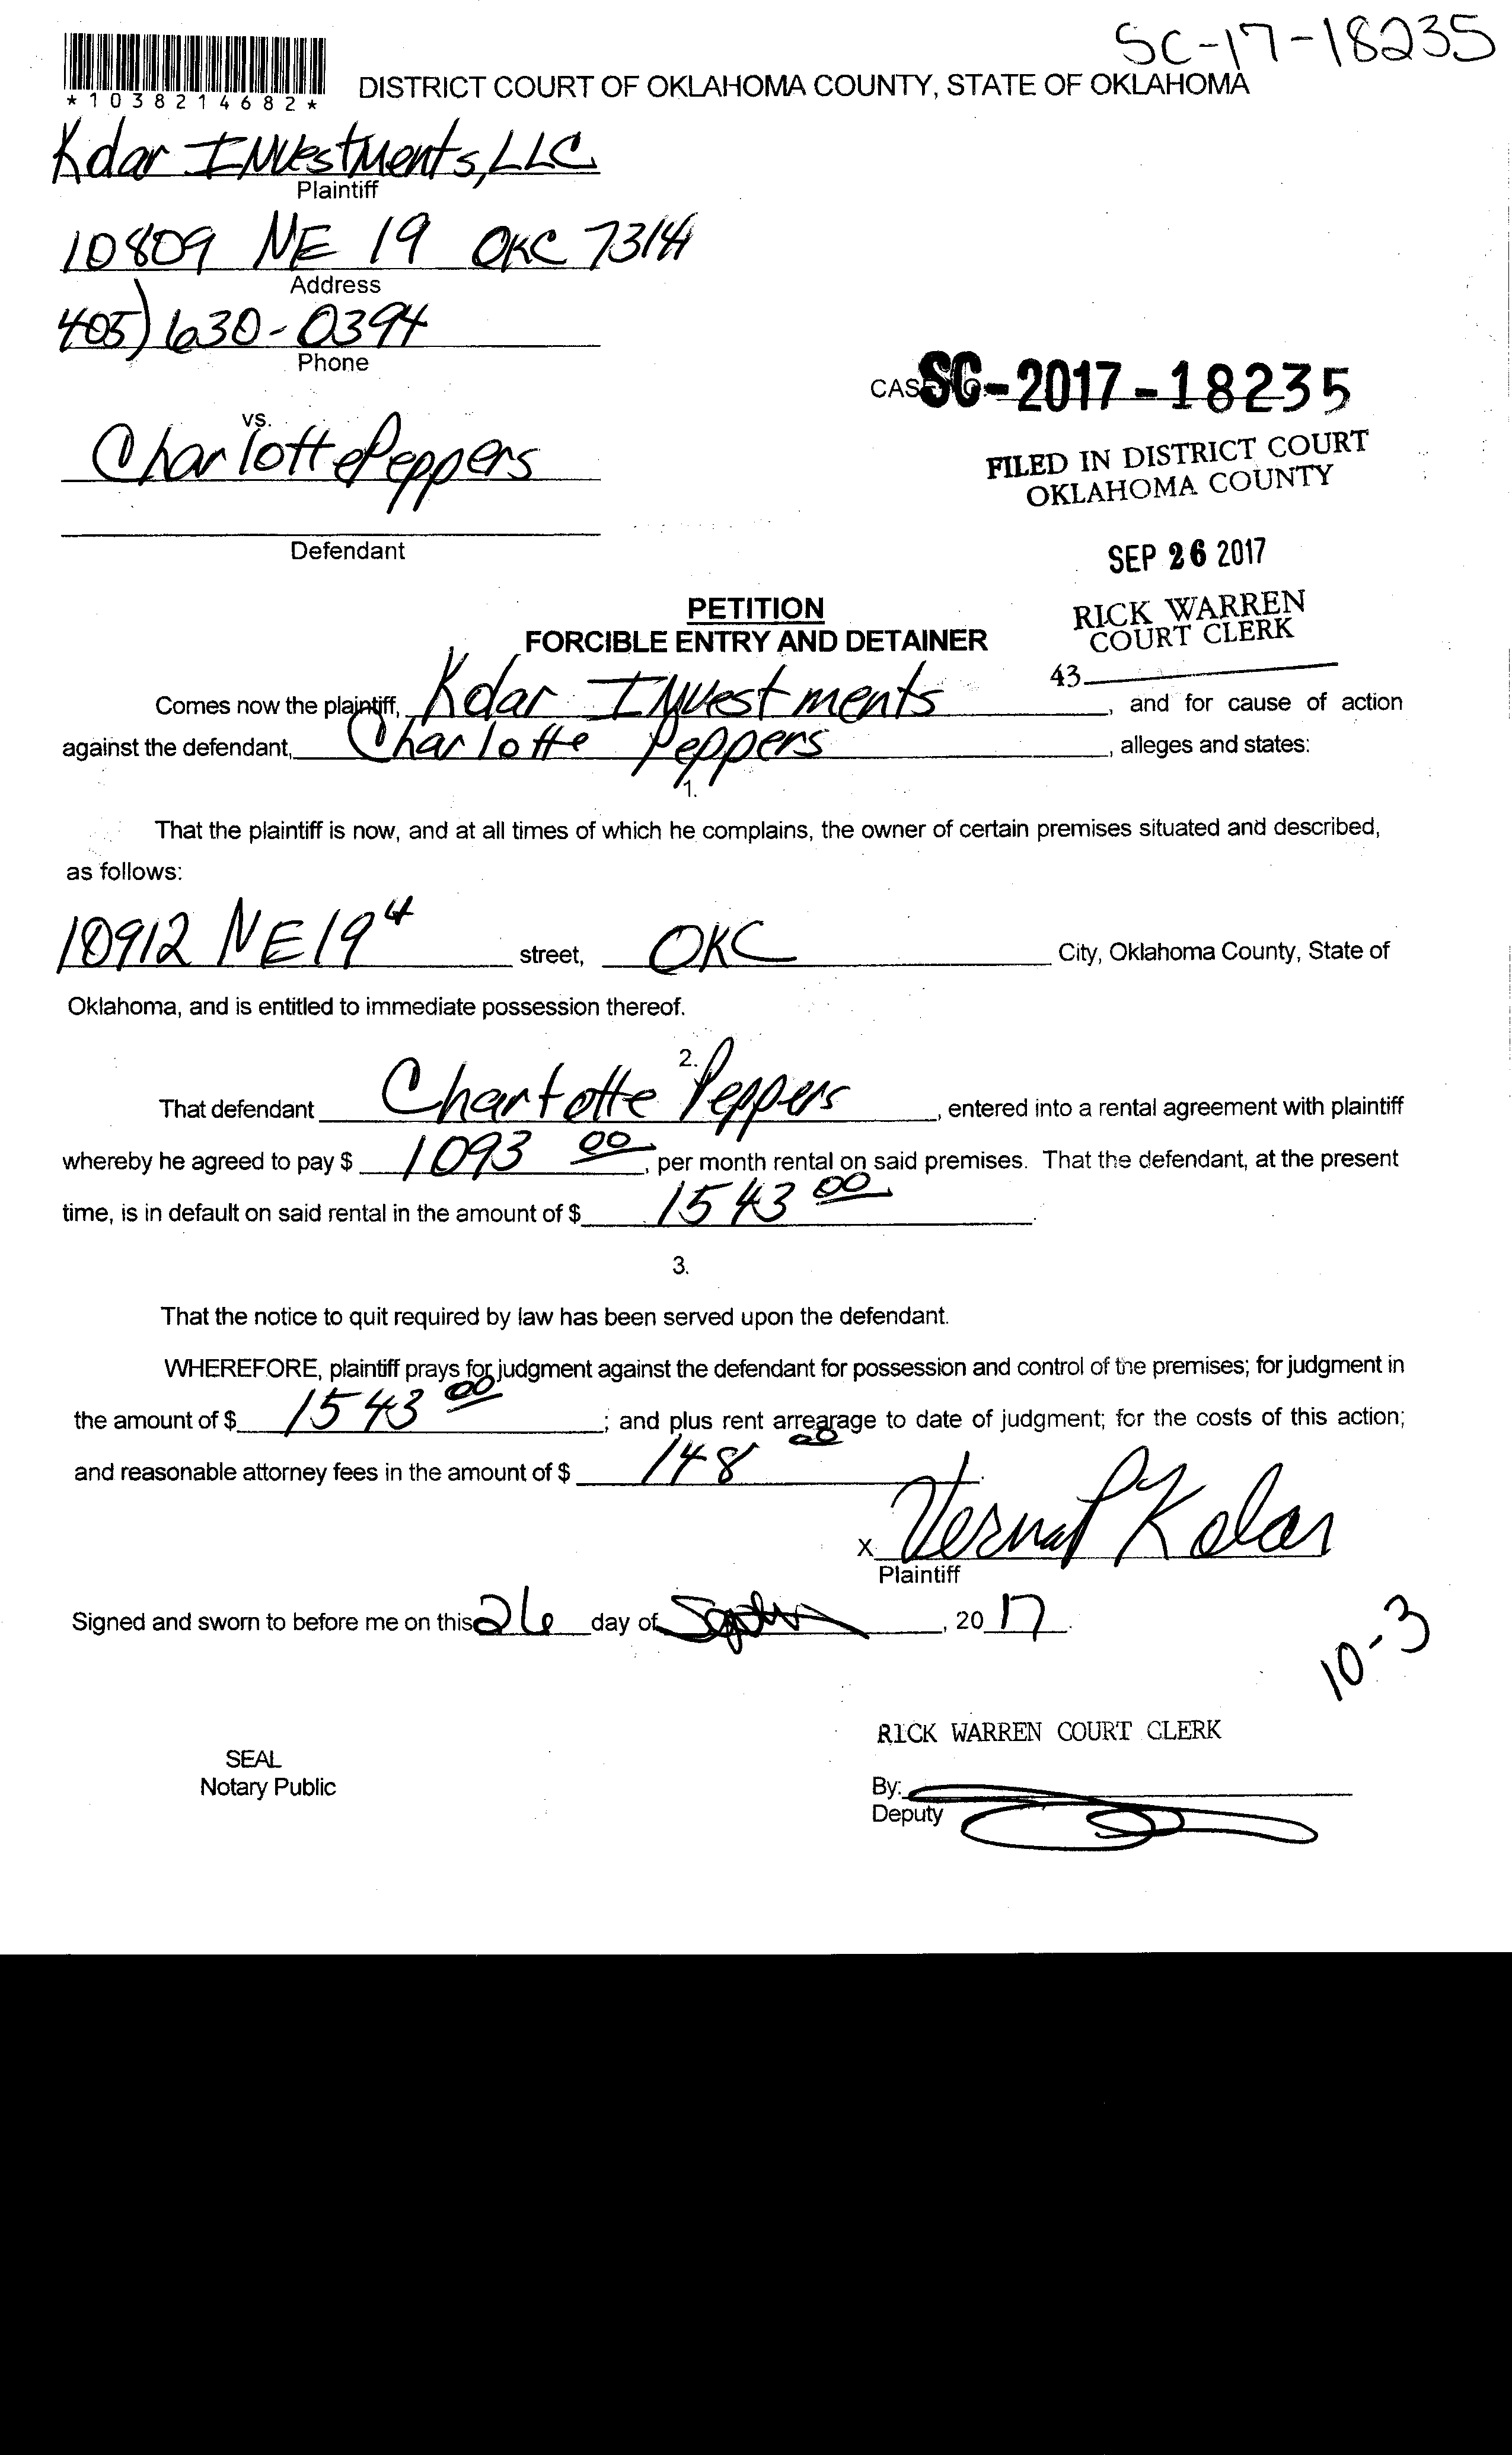 SC-17-18235
*1038214682*
DISTRICT COURT OF OKLAHOMA COUNTY, STATE OF OKLAHOMA
Kdar Investments, LLC
Plaintiff
10809 NE 19 OKC 73141
Address
405) 630-0394
Phone
CASE NO. SC-2017-18235
vs.
Charlotte Peppers
FILED IN DISTRICT COURT
OKLAHOMA COUNTY
Defendant
SEP 26 2017
PETITION
FORCIBLE ENTRY AND DETAINER
RICK WARREN
COURT CLERK
43
Comes now the plaintiff, Kdar Investments, and for cause of action
against the defendant, Charlotte Peppers, alleges and states:
1.
That the plaintiff is now, and at all times of which he complains, the owner of certain premises situated and described,
as follows:
10912 NE 19 street, OKC City, Oklahoma County, State of
Oklahoma, and is entitled to immediate possession thereof.
2.
That defendant Charlotte Peppers, entered into a rental agreement with plaintiff
whereby he agreed to pay $ 1093 00, per month rental on said premises. That the defendant, at the present
time, is in default on said rental in the amount of $ 1543 00.
3.
That the notice to quit required by law has been served upon the defendant.
WHEREFORE, plaintiff prays for judgment against the defendant for possession and control of the premises; for judgment in
the amount of $ 1543 00; and plus rent arrearage to date of judgment; for the costs of this action;
and reasonable attorney fees in the amount of $ 148 00.
X
Plaintiff
Signed and sworn to before me on this 26 day of , 20 17.
10-3
RICK WARREN COURT CLERK
SEAL
Notary Public
By:
Deputy